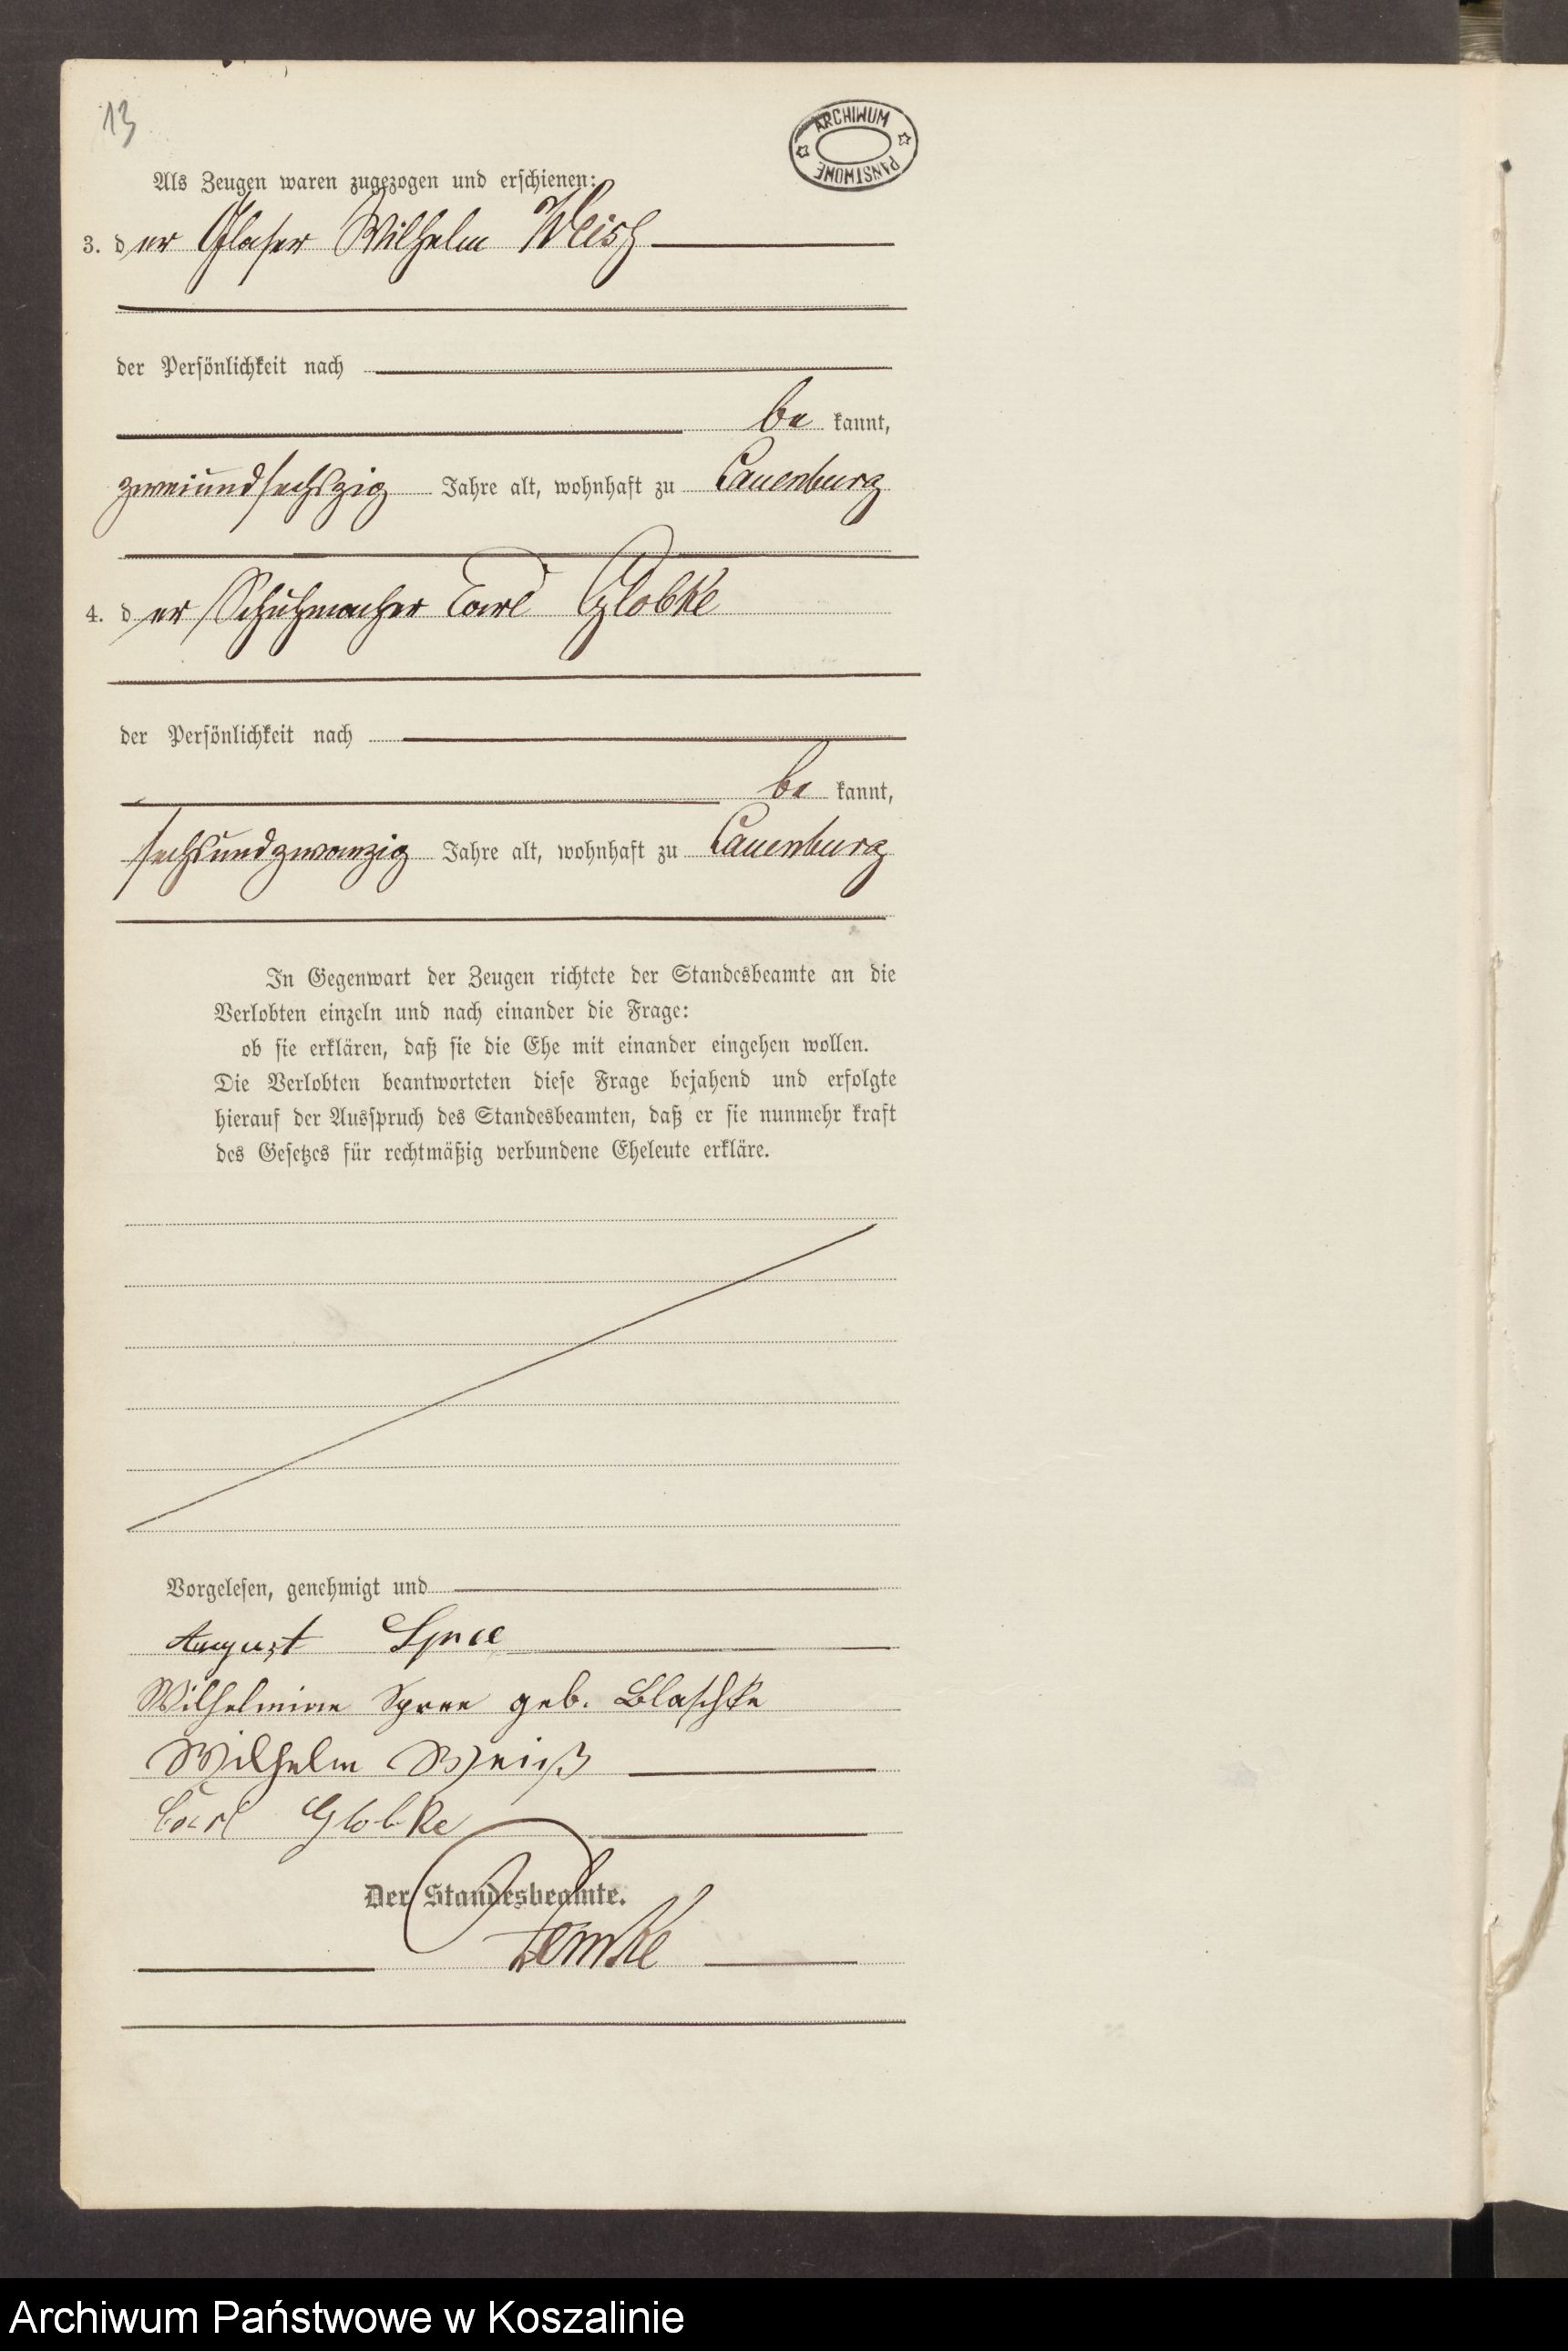 13
ARCHIWUM
PAŃSTWOWE
Als Zeugen waren zugezogen und erschienen:
3. der Glaser Wilhelm Weiß
der Persönlichkeit nach
be kannt,
zweiundsechszig Jahre alt, wohnhaft zu Lauenburg
4. der Schuhmacher Carl Globke
der Persönlichkeit nach
be kannt,
sechsundzwanzig Jahre alt, wohnhaft zu Lauenburg
In Gegenwart der Zeugen richtete der Standesbeamte an die
Verlobten einzeln und nach einander die Frage:
ob sie erklären, daß sie die Ehe mit einander eingehen wollen.
Die Verlobten beantworteten diese Frage bejahend und erfolgte
hierauf der Ausspruch des Standesbeamten, daß er sie nunmehr kraft
des Gesetzes für rechtmäßig verbundene Eheleute erkläre.
Vorgelesen, genehmigt und
August Spree
Wilhelmine Spree geb. Blaschke
Wilhelm Weiß
Carl Globke
Der Standesbeamte.
Archiwum Państwowe w Koszalinie